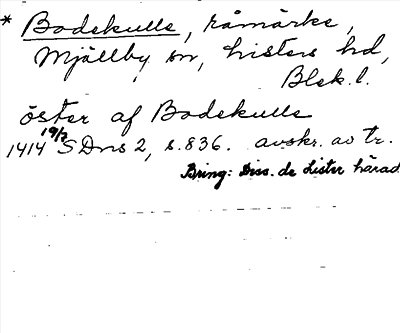 * Bodekulle, råmärke,
Mjällby sn, Listers hd,
Blek. l.
öster af Bodekulle
1414 19/7 SDns 2, s. 836. avskr. av tr.
Bring: Diss. de Lister härad